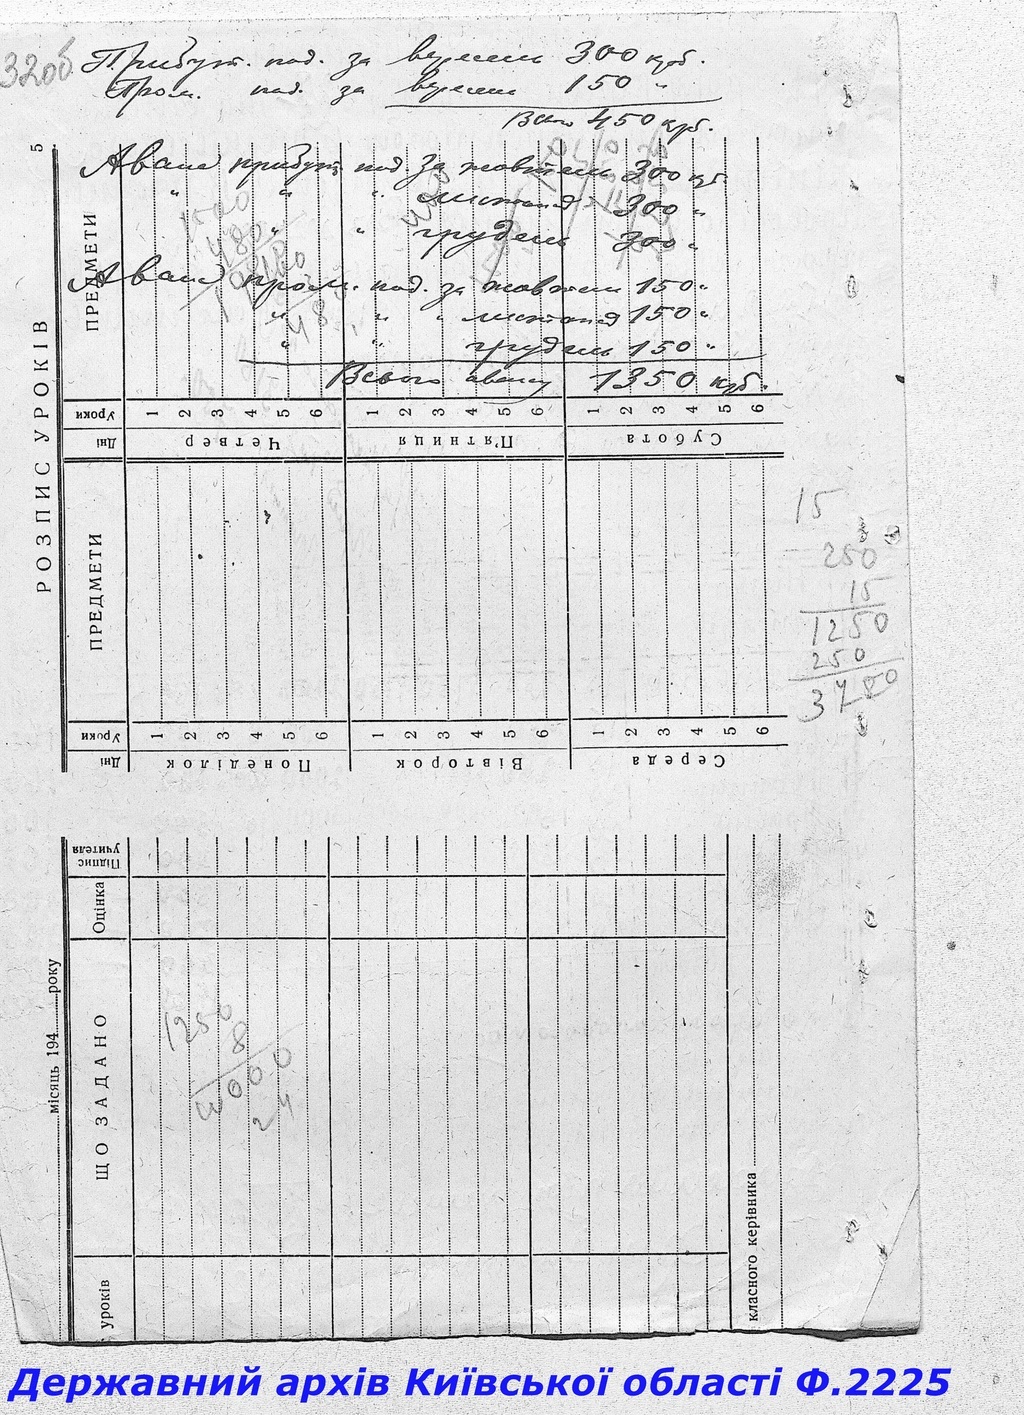 32об
Прибут. под. за вересень 300 крб.
Пром. под. за вересень 150 "
Всього 450 крб.
5
Аванс прибут. под. за жовтень 300 крб.
" " " листопад 300 "
" " грудень 300 "
Аванс пром. под. за жовтень 150 "
" " " листопад 150 "
" " грудень 150 "
Всього авансу 1350 крб.
1500
480
480
РОЗПИС УРОКІВ
ПРЕДМЕТИ
Уроки 1 2 3 4 5 6 1 2 3 4 5 6 1 2 3 4 5 6
Дні Четвер П'ятниця Субота
ПРЕДМЕТИ
Уроки 1 2 3 4 5 6 1 2 3 4 5 6 1 2 3 4 5 6
Дні Понеділок Вівторок Середа
15
250
15
1250
250
3750
Підпис учителя
Оцінка
ЩО ЗАДАНО
місяць 194 року
1250
8
10000
24
уроків
класного керівника
Державний архів Київської області Ф.2225